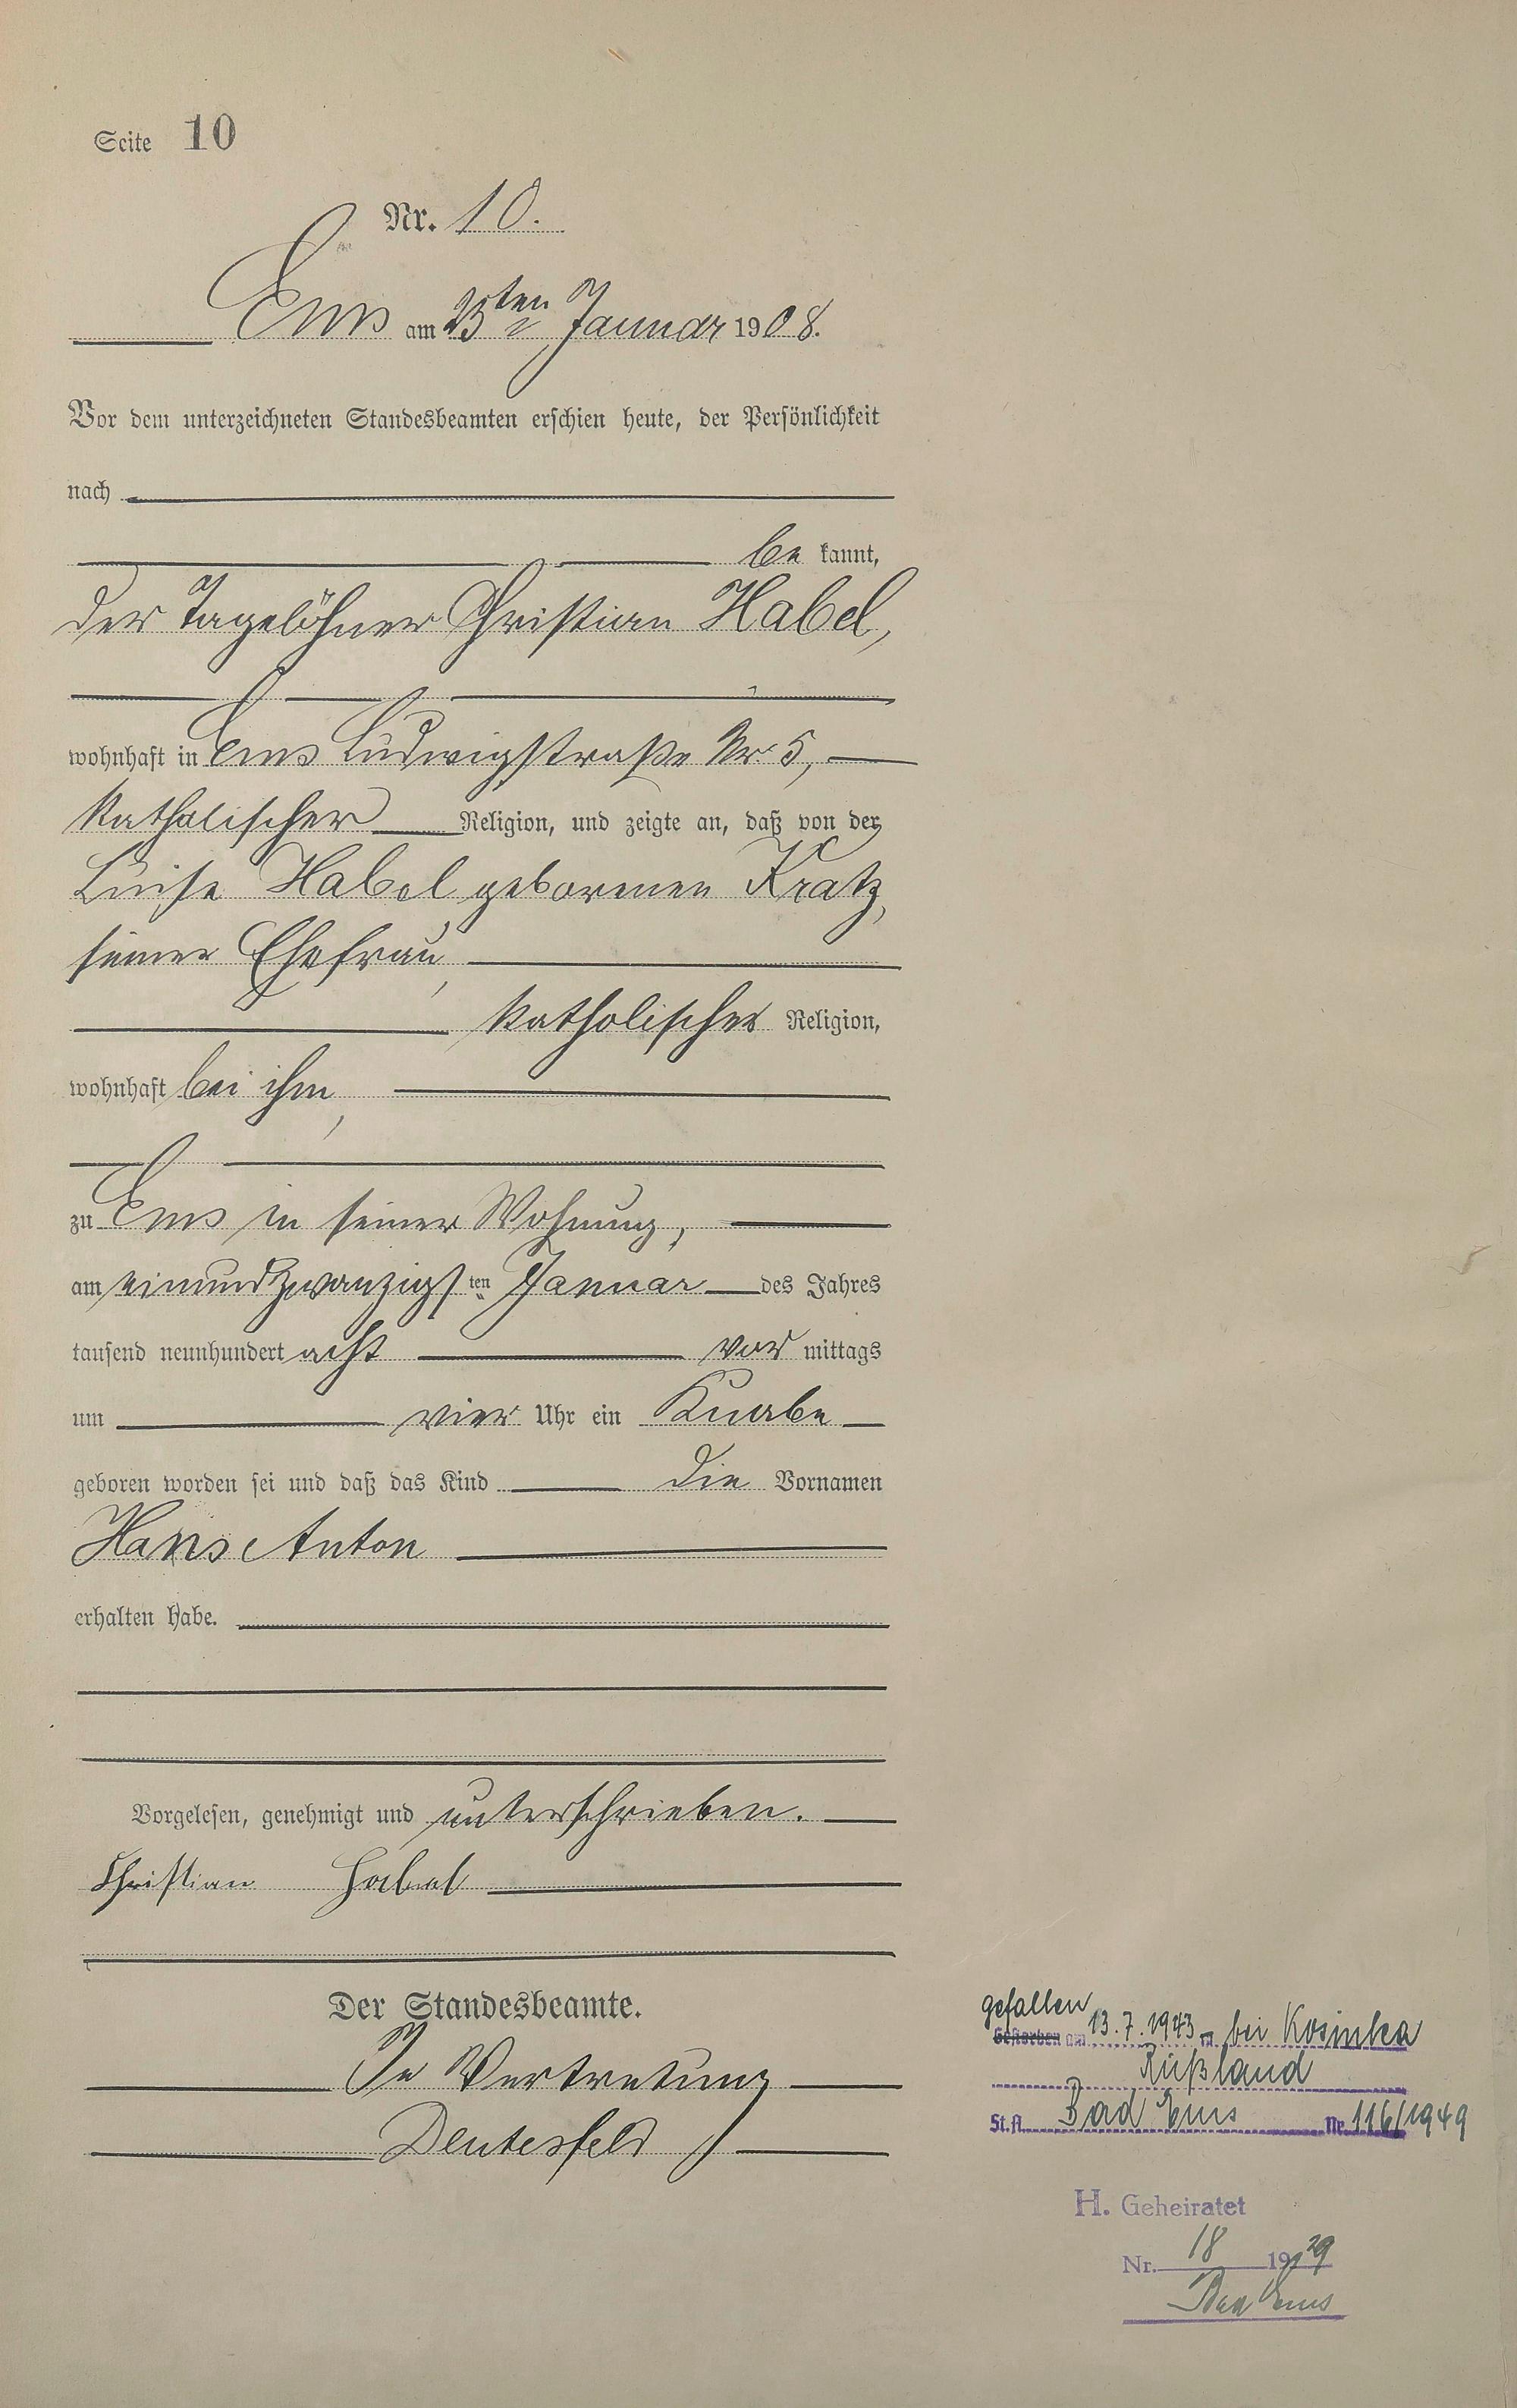 Seite 10
Nr. 10.
Ems am 23ten Januar 1908.
Vor dem unterzeichneten Standesbeamten erschien heute, der Persönlichkeit
nach
be kannt,
der Tagelöhner Christian Habel,
wohnhaft in Ems Ludwigstraße Nr. 5,
katholischer Religion, und zeigte an, daß von der
Luise Habel geborenen Kratz,
seiner Ehefrau,
katholischer Religion,
wohnhaft bei ihm,
zu Ems in seiner Wohnung,
am einundzwanzigsten Januar des Jahres
tausend neunhundert acht vor mittags
um vier Uhr ein Knabe
geboren worden sei und daß das Kind die Vornamen
Hans Anton
erhalten habe.
Vorgelesen, genehmigt und unterschrieben.
Christian Habel
Der Standesbeamte.
In Vertretung
Deutesfeld
gefallen
Gestorben am 13.7.1943 in bei Kosinka
Rußland
St.A. Bad Ems Nr. 116/1949
H. Geheiratet
Nr. 18 1929
Bad Ems